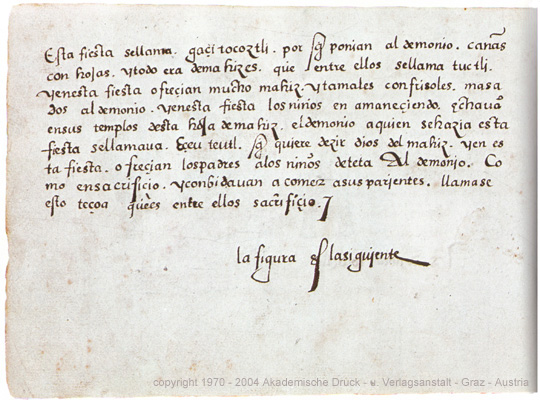 Esta fiesta sellama. gaçi tocoztli. por q̃ ponian al demonio. cañas
con hojas. ytodo era demahizes. que entre ellos sellama tuctli.
yenesta fiesta ofreçian mucho mahiz. ytamales confrisoles. masa
dos al demonio. yenesta fiesta los niños en amaneçiendo. echauã
ensus templos desta hoja de mahiz. el demonio aquien sehazia esta
fiesta sellamaua. çeu teutl. q̃ quiere dezir dios del mahiz. yen es
ta fiesta. ofreçian lospadres alos niños deteta Al demonio. Co
mo ensacrifiçio. yconbidauan a comer asus parjentes. llamase
esto teçoa entre ellos sacrifiçio.
la figura es lasiguiente
copyright 1970 - 2004 Akademische Druck - u. Verlagsanstalt - Graz - Austria